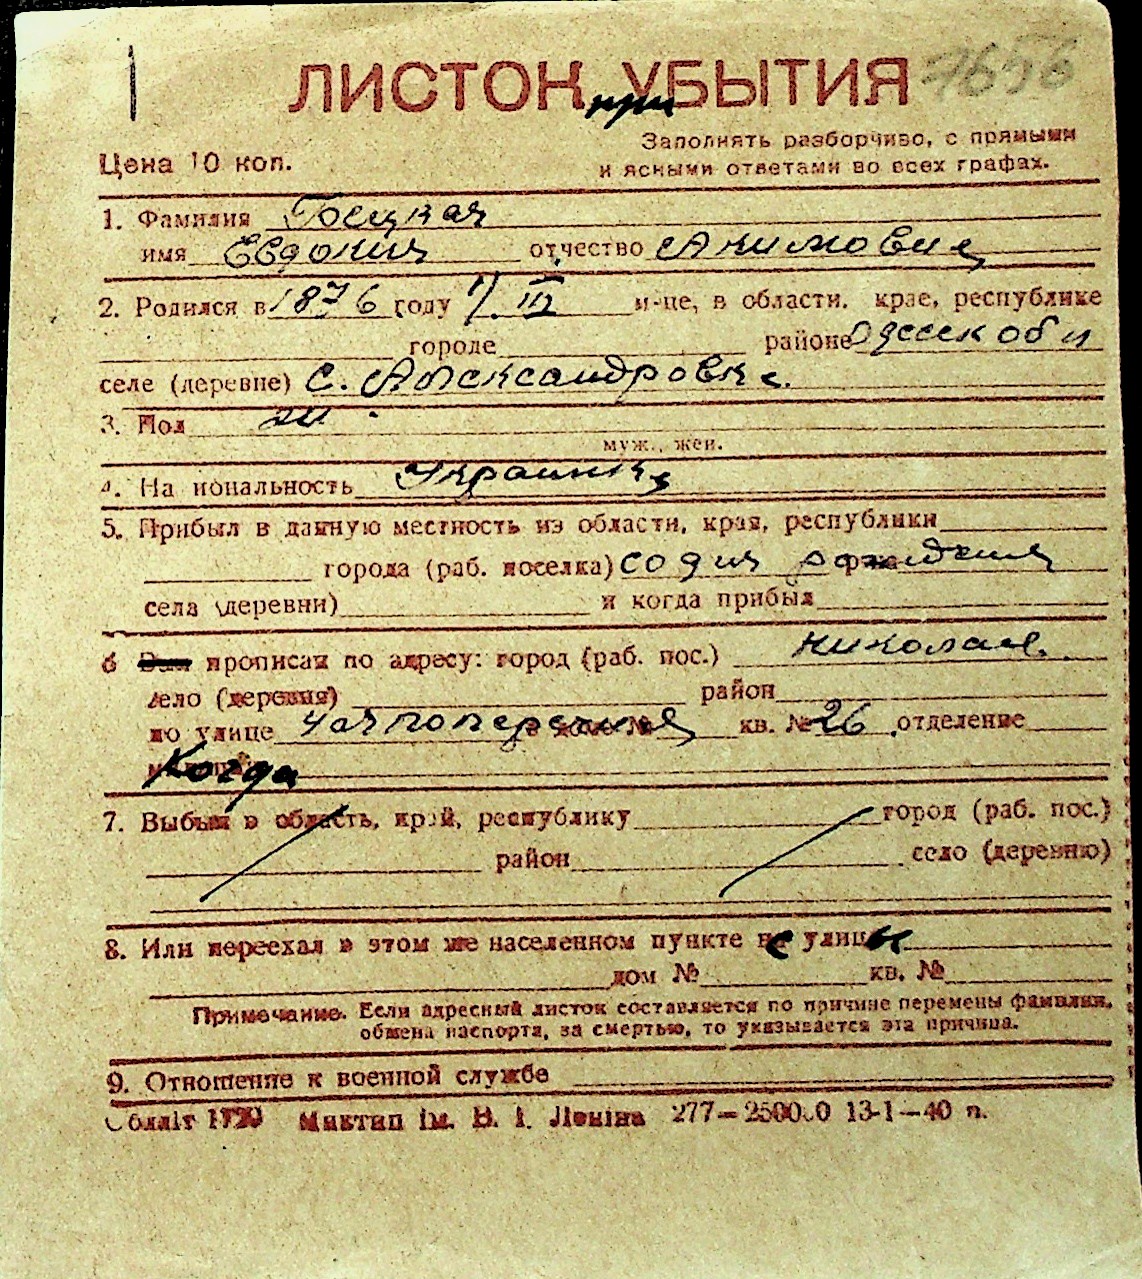 1656
ЛИСТОК при УБЫТИЯ
Заполнять разборчиво, с прямыми
Цена 10 коп.
и ясными ответами во всех графах.
1. Фамилия Госцкая
имя Евдокия отчество Акимовна
2. Родился в 1876 году 1/III м-це, в области, крае, республике
городе районе Одесск обл
селе (деревне) с. Александровка.
3. Пол ж.
муж., жен.
4. Национальность Украинка
5. Прибыл в данную местность из области, края, республики
города (раб. поселка) со дня рождения
села (деревни) и когда прибыл
6 прописан по адресу: город (раб. пос.) Николаев.
село (деревня) район
по улице 4ая поперечная дом № кв. № 26 отделение
Когда
7. Выбыл в область, край, республику город (раб. пос.)
район село (деревню)
8. Или переехал в этом же населенном пункте с улицы
дом № кв. №
Примечание. Если адресный листок составляется по причине перемены фамилии,
обмена паспорта, за смертью, то указывается эта причина.
9. Отношение к военной службе
Обллiт 1720 Миктип iм. В. I. Ленiна 277—250000 13-1—40 п.